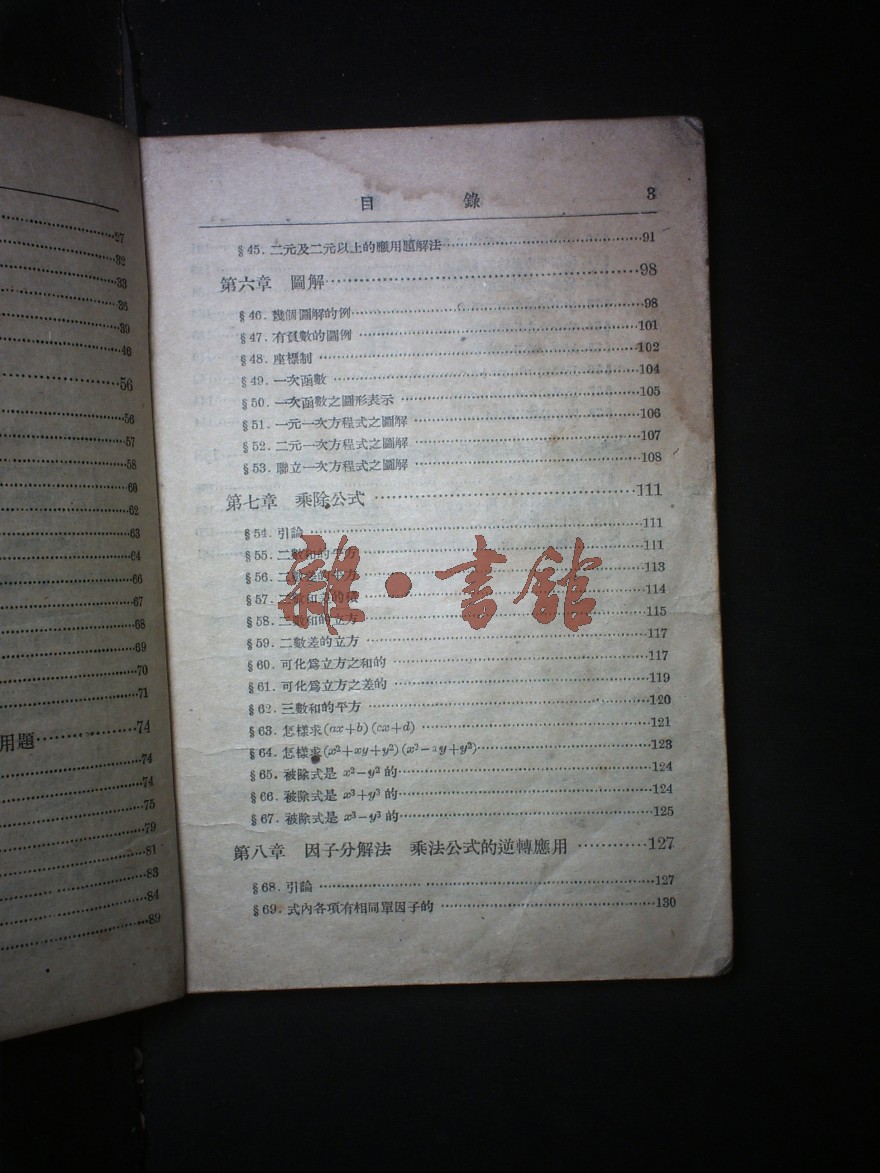 27
32
33
36
39
46
56
56
57
58
60
62
63
64
66
67
68
69
70
71
用題 74
74
74
75
79
81
83
84
89
目 錄 3
§45. 二元及二元以上的應用題解法 91
第六章 圖解 98
§46. 幾個圖解的例 98
§47. 有負數的圖例 101
§48. 座標制 102
§49. 一次函數 104
§50. 一次函數之圖形表示 105
§51. 一元一次方程式之圖解 106
§52. 二元一次方程式之圖解 107
§53. 聯立一次方程式之圖解 108
第七章 乘除公式 111
§54. 引論 111
§55. 二數和的平方 111
§56. 二數差的平方 113
§57. 二數和差的積 114
§58. 二數和的立方 115
§59. 二數差的立方 117
§60. 可化爲立方之和的 117
§61. 可化爲立方之差的 119
§62. 三數和的平方 120
§63. 怎樣求(ax+b)(cx+d) 121
§64. 怎樣求(x²+xy+y²)(x²-xy+y²) 123
§65. 被除式是 x²-y² 的 124
§66. 被除式是 x³+y³ 的 124
§67. 被除式是 x³-y³ 的 125
第八章 因子分解法 乘法公式的逆轉應用 127
§68. 引論 127
§69. 式內各項有相同單因子的 130
雜·書館